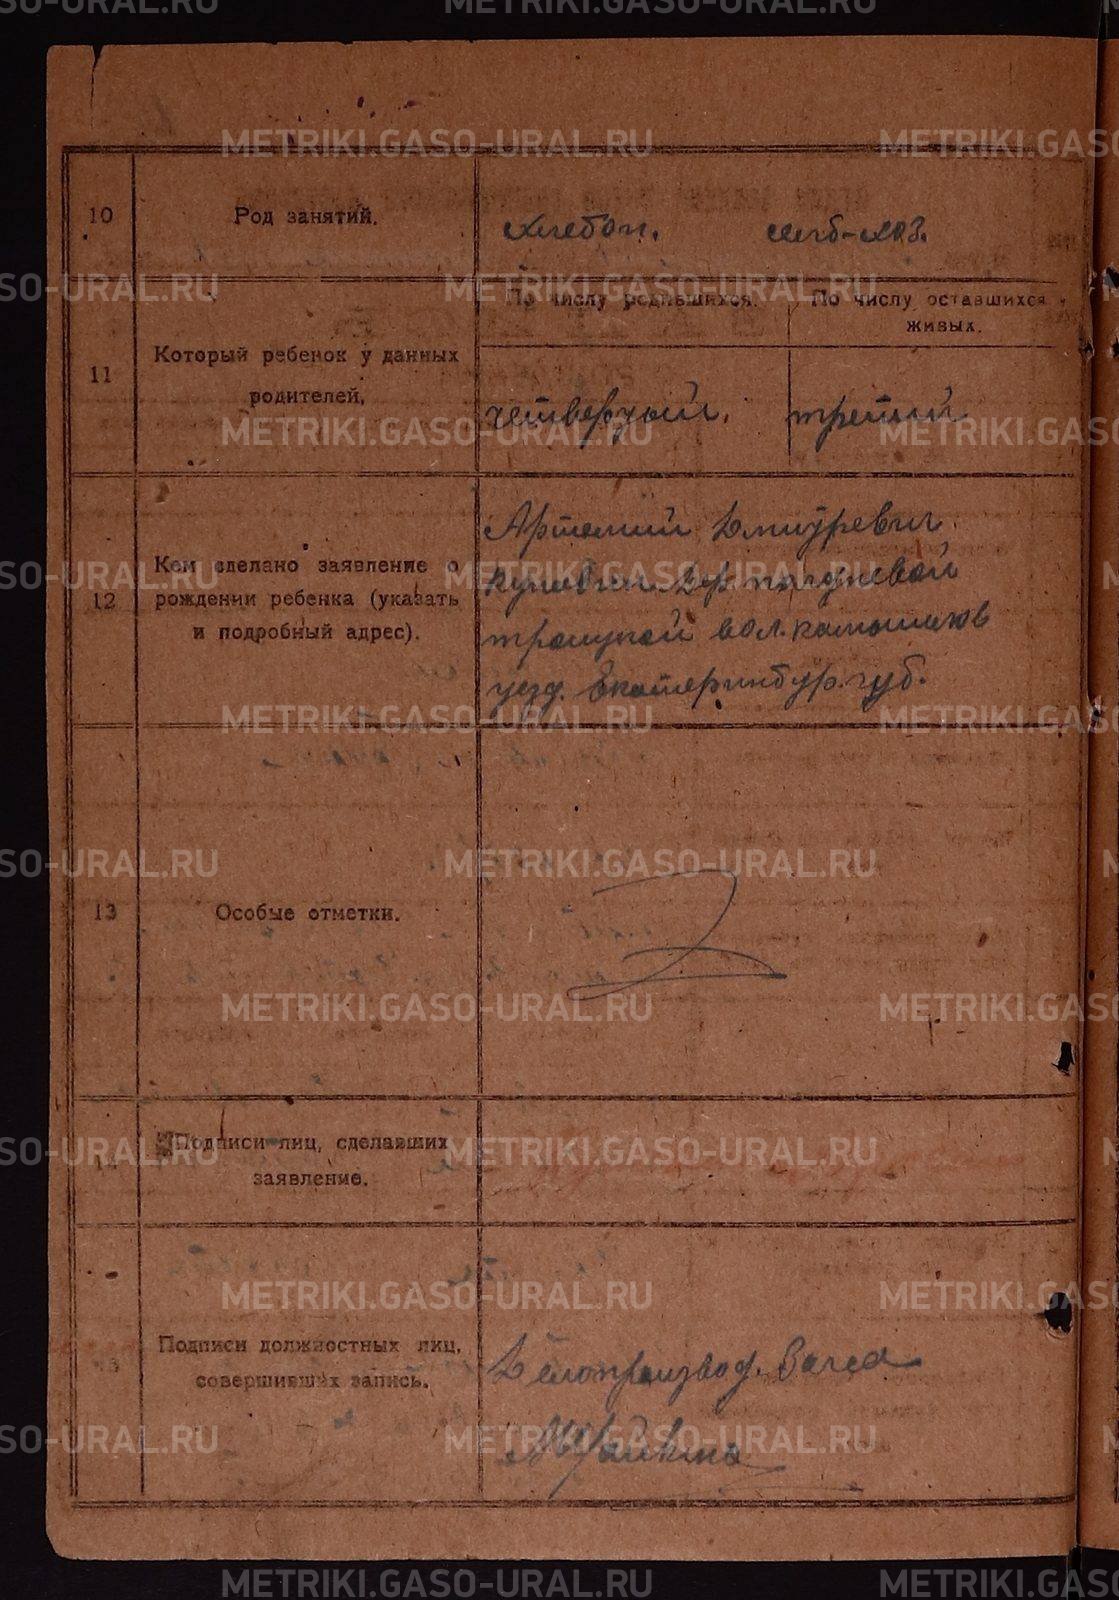 10
Род занятий.
хлебоп. сель-хоз.
11
Который ребенок у данных
родителей,
По числу родившихся.
По числу оставшихся
живых.
четвертый. третий
12
Кем сделано заявление о
рождении ребенка (указать
и подробный адрес).
Артемий Дмитревич
дер. полдневой
троицкой вол. камышлов
уезд. Екатеринбур. губ.
13
Особые отметки.
14
Подписи лиц, сделавших
заявление.
Подписи должностных лиц,
совершивших запись.
Делопроизвод. Загса
METRIKI.GASO-URAL.RU